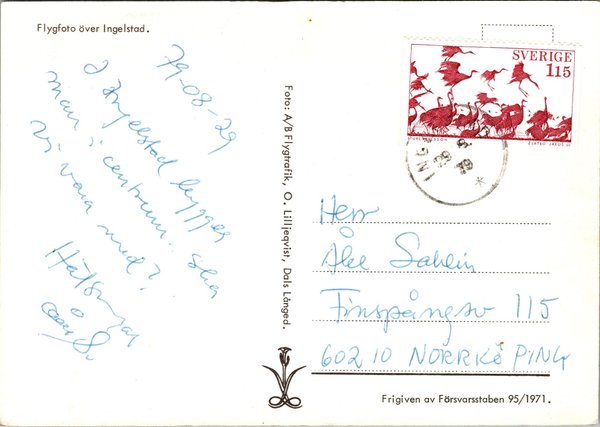 Flygfoto över Ingelstad.
79-08-29
I Ingelstad bygger
man i centrum. Ska
vi vara med?
Hälsningar
Foto: A/B Flygtrafik, O. Lilljeqvist, Dals Långed.
SVERIGE
115
ING
Herr
Åke Sahlin
Finspångsv 115
602 10 NORRKÖPING
Frigiven av Försvarsstaben 95/1971.